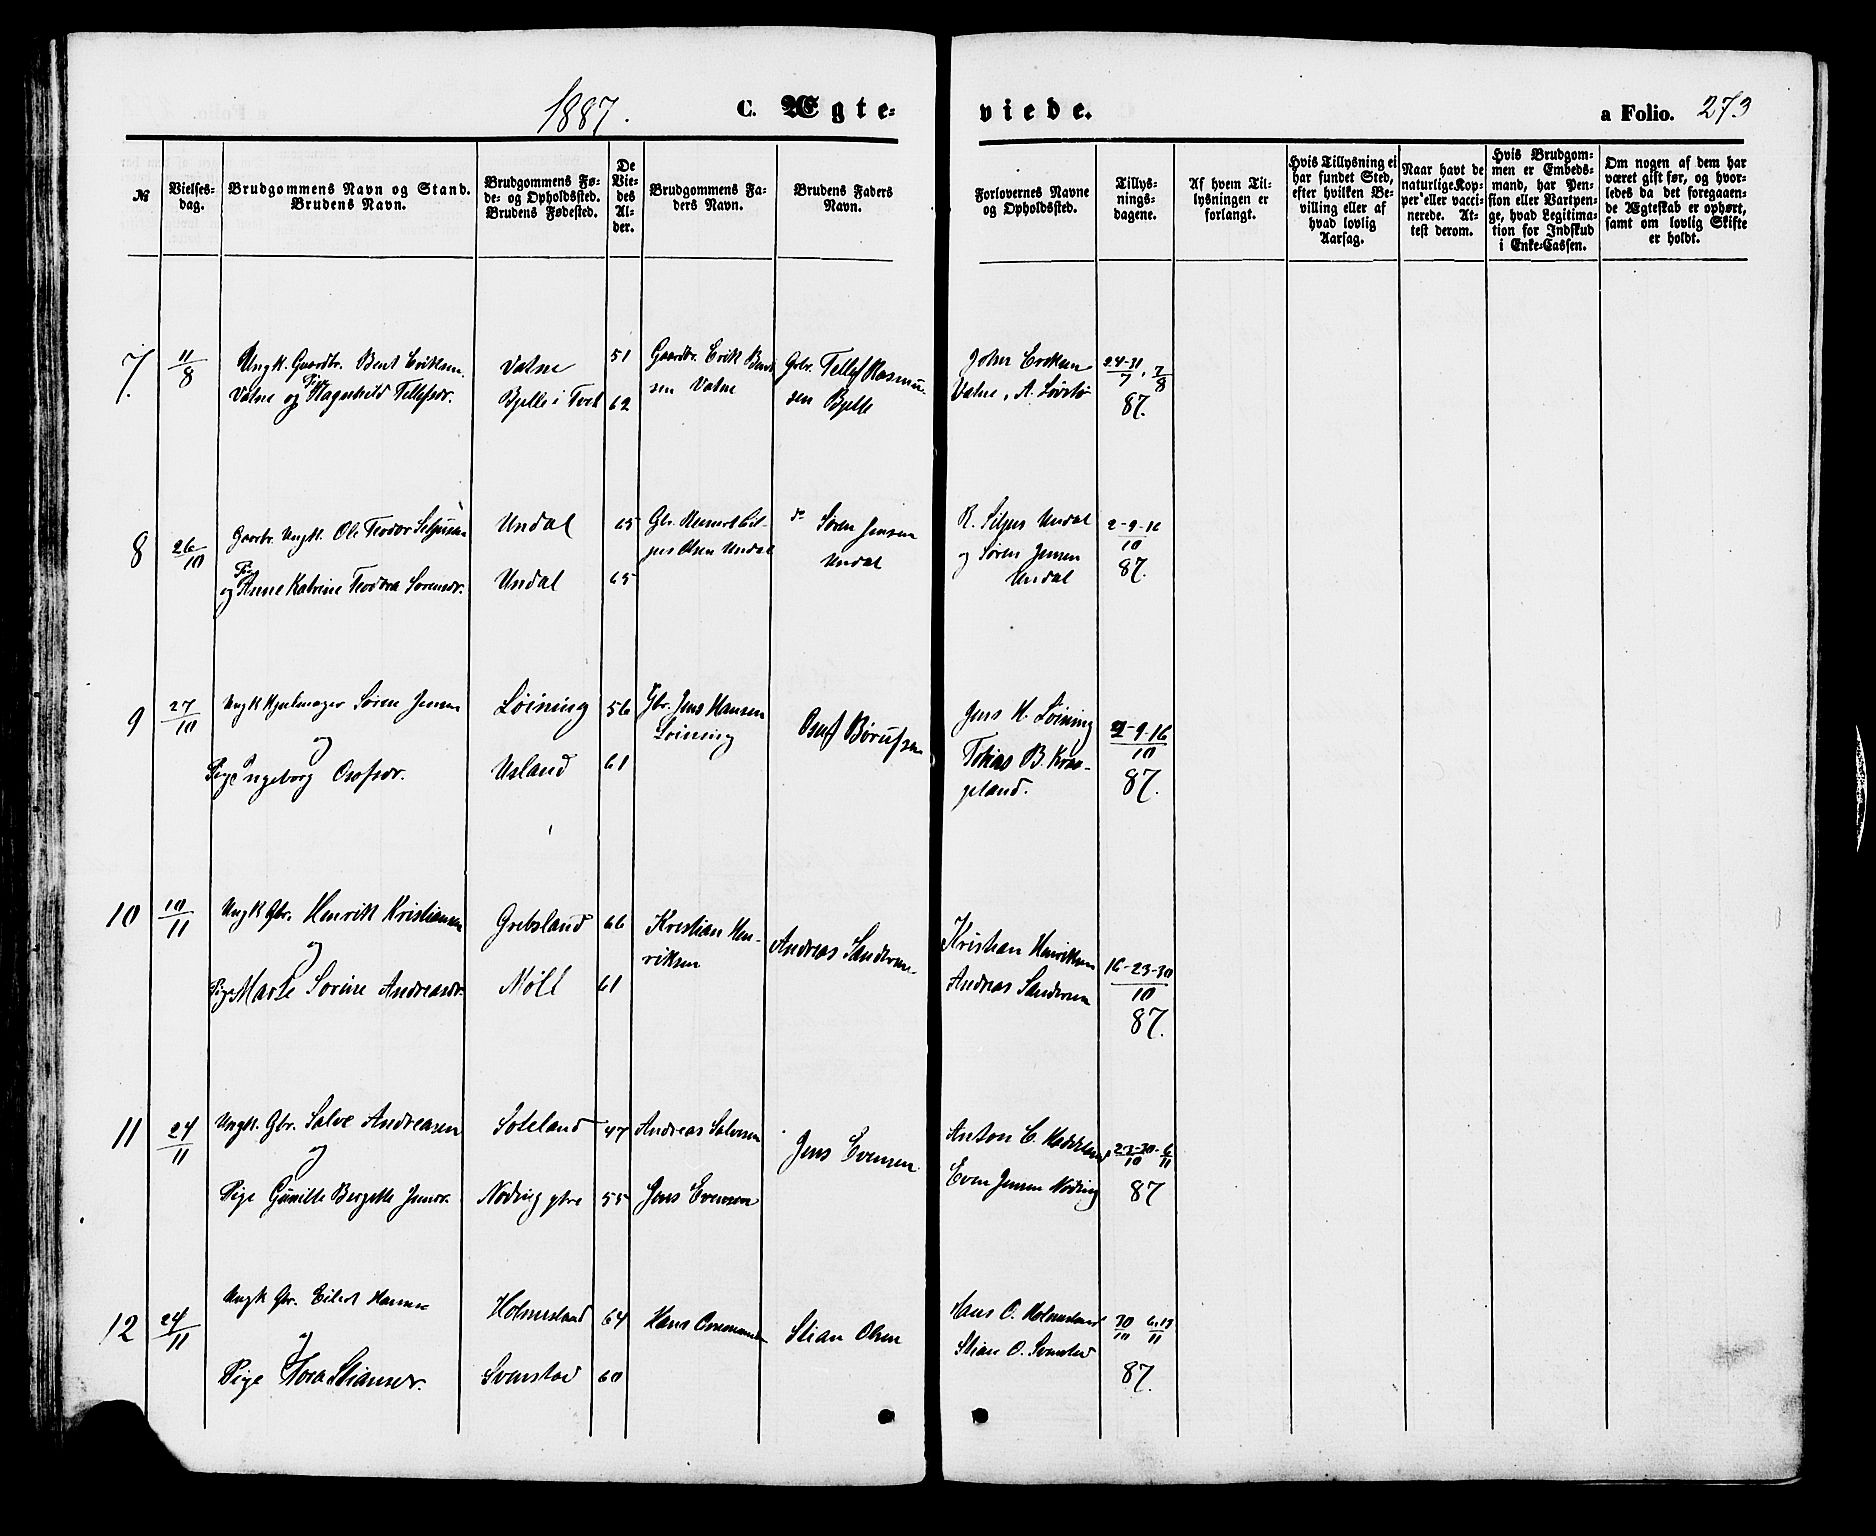 1887.
C. Ægte-
viede.
a Folio. 273
№
Vielses-
dag.
Brudgommens Navn og Stand.
Brudens Navn.
Brudgommens Fø-
de- og Opholdssted.
Brudens Fødested.
De
Vie-
des
Al-
der.
Brudgommens Fa-
ders Navn.
Brudens Faders
Navn.
Forlovernes Navne
og Opholdssted.
Tillys-
nings-
dagene.
Af hvem Til-
lysningen er
forlangt.
Hvis Tillysning ei
har fundet Sted,
efter hvilken Be-
villing eller af
hvad lovlig
Aarsag.
Naar havt de
naturlige Kop-
per eller vacci-
nerede. At-
test derom.
Hvis Brudgom-
men er Embeds-
mand, har Pen-
sion eller Vartpen-
ge, hvad Legitima-
tion for Indskud
i Enke-Cassen.
Om nogen af dem har
været gift før, og hvor-
ledes da det foregaaen-
de Ægteskab er ophørt,
samt om lovlig Skifte
er holdt.
7.
11/8
Ungk. Gaardbr. Bent Eriksen
Vatne og Pig Ragnhild Tellefsdr.
Vatne
Bjelle i Tveit
51
62
Gaardbr. Erik Bent
sen Vatne
Gbr. Tellef Rasmu-
sen Bjelle
John Eriksen
Vatne, A.
24-31/7, 7/8
87.
8
26/10
Gaarbr. Ungk. Ole Teodor
og Pig Anne Katrine Teodora Sorensdr.
Undal
Undal
65
65
Gbr.
Olsen Undal
do Søren Jensen
Undal
R. Undal
og Søren Jensen
Undal
2-9-16/10
87.
9
27/10
Ungk Hjulmager Søren Jensen
og
Pige Ingeborg Osofsdr.
Løining
Usland
56
61
Gbr. Jens Hansen
Løining
Børufsen
Jens H. Løining
Tobias B. Kraa-
geland.
2-9-16/10
87.
10
10/11
Ungk Gbr. Henrik Kristiansen
og
Pige Marte Sorine Andreasdr.
Grebsland
Nøll
66
61
Kristian Hen-
riksen
Andreas Sandersen
Kristian Henriksen
Andreas Sandersen
16-23-30/10
87.
11
24/11
Ungk. Gbr. Salve Andreasen
og
Pige Gunille Bergitte Jensdr.
Soteland
Noding ytre
47
55
Andreas Salvesen
Jens Evensen
Jens Evensen
Anton C.
Even Jensen Nøding
23-30/10-6/11
87
12
24/11
Ungk Gbr. Eilert Hansen
og
Pige Tora Stiansdr.
Holmesland
Svenstad
64
60
Hans
Stian Olsen
Hans O. Holmesland
Stian O. Svenstad
30/10 6.13/11
87.